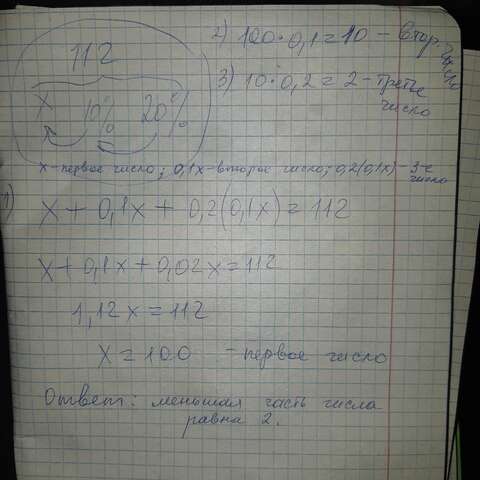 112
x 10% 20%
2) 100 · 0,1 = 10 - втор. число
3) 10 · 0,2 = 2 - третье
число
x - первое число; 0,1x - второе число; 0,2(0,1x) - 3-е
число
1) x + 0,1x + 0,2(0,1x) = 112
x + 0,1x + 0,02x = 112
1,12x = 112
x = 100 - первое число
Ответ: меньшая часть числа
равна 2.